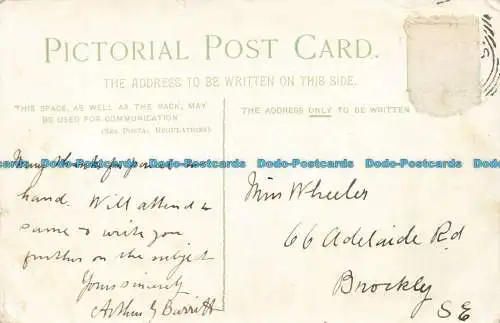 PICTORIAL POST CARD.
THE ADDRESS TO BE WRITTEN ON THIS SIDE.
THIS SPACE, AS WELL AS THE BACK, MAY
BE USED FOR COMMUNICATION
(SEE POSTAL REGULATIONS)
THE ADDRESS ONLY TO BE WRITTEN
Dodo-Postcards Dodo-Postcards Dodo-Postcards Dodo-Postcards Dodo-Postcards Dodo-Postcards
Many thanks for
hand. Will attend to
same & write you
further on the subject
Yours sincerely
Arthur G Burritt
Miss Wheeler
66 Adelaide Rd
Brockly
SE